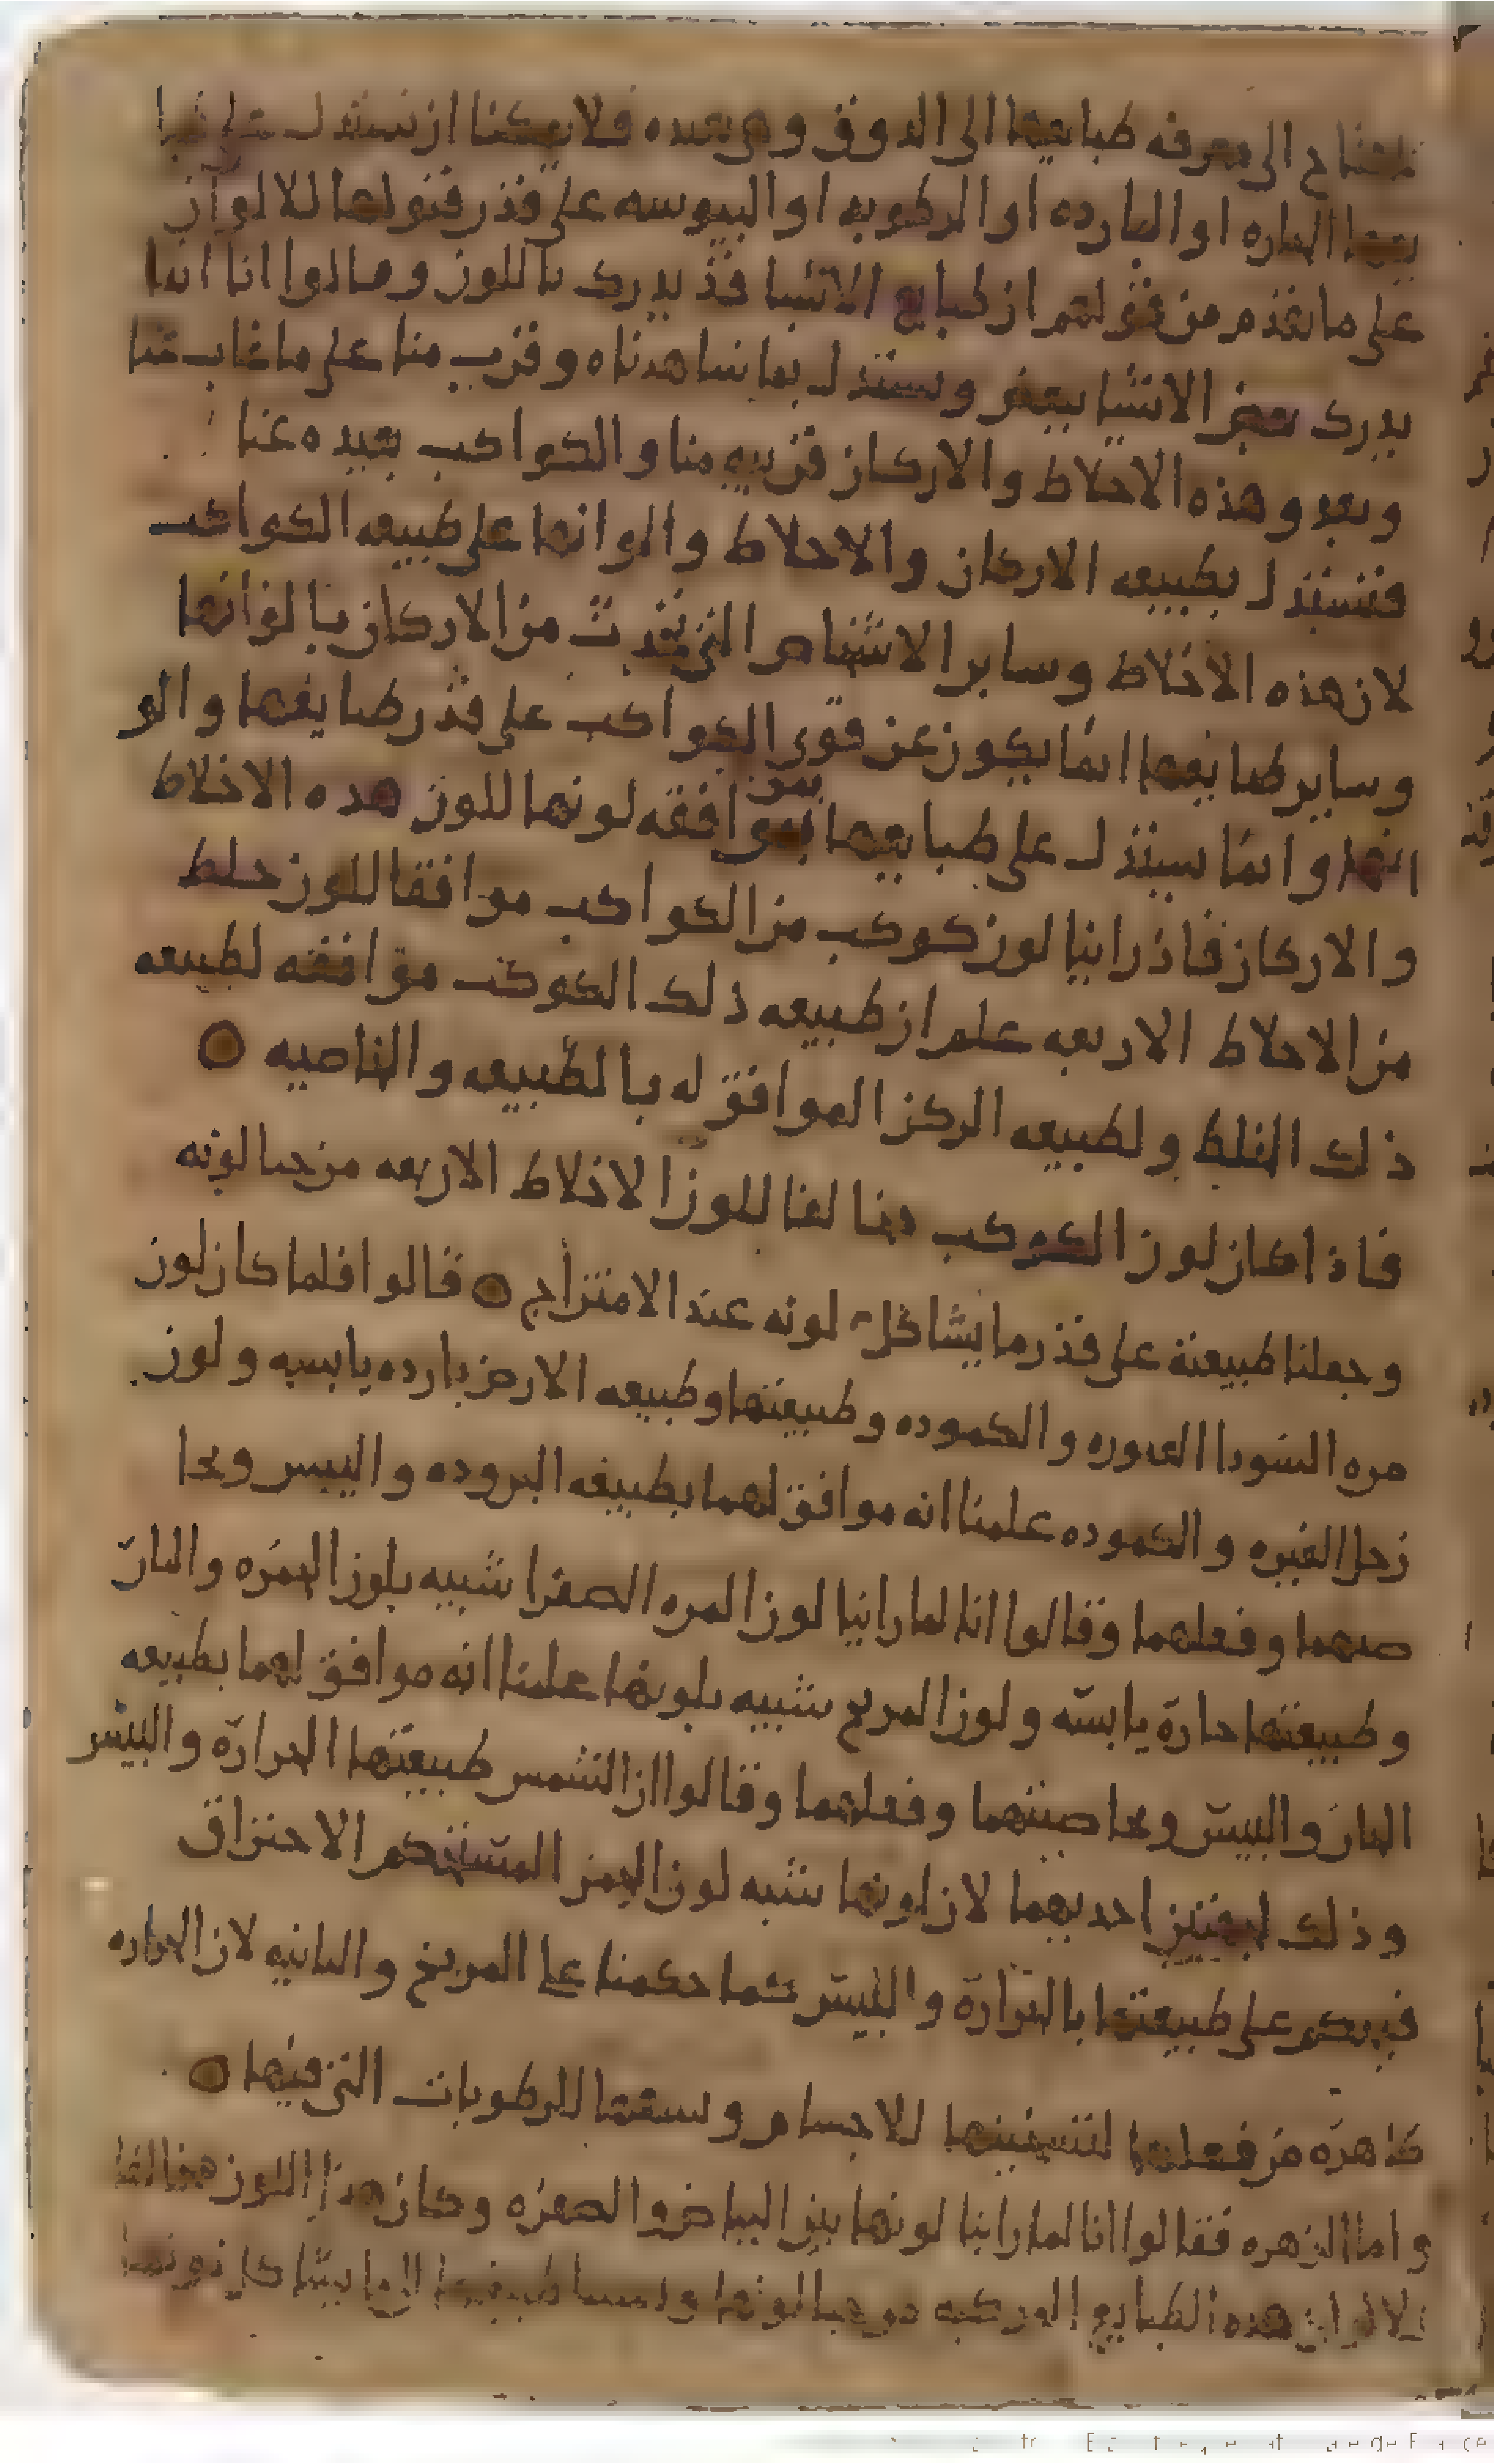 نحتاج الى معرفه طبايعها الى الدوق وهى بعيده فلا يمكننا ان نستدل على طبا
يعها الحاره او البارده او الرطوبه او اليبوسه على قدر قبولها للالوان
على ما تقدم من قولهم ان طبايع الاشيا قد يدرك باللون وقالوا انا انما
يدرك بعض الاشيا ببعض ويستدل بما شاهدناه وقرب منا على ما غاب عنا
وبعد وهذه الاخلاط والاركان قريبه منا والكواكب بعيده عنا
فنستدل بطبيعه الاركان والاخلاط والوانها على طبيعه الكواكب
لان هذه الاخلاط وساير الاشخاص التى تحدث من الاركان بالوانها
وساير طبايعها انما يكون عن قوى الكواكب على قدر طبايعها والو
انها وانما سيتدل على طبايعها بموافقه لونها للون هده الاخلاط
والاركان فاذ راينا لون كوكب من الكواكب موافقا للون خلط
من الاخلاط الاربعه علم ان طبيعه ذلك الكوكب موافقه لطبيعه
ذلك الخلط ولطبيعه الركن الموافق له بالطبيعه والخاصيه
فاذا كان لون الكوكب مخالفا للون الاخلاط الاربعه مزجنا لونه
وجعلنا طبيعته على قدر ما يشاكل لونه عند الامتزاج قالوا فلما كان لون
مره السودا الغبوره والكموده وطبيعتها وطبيعه الارض بارده يابسه ولون
زحل الغبره والكموده علمنا انه موافق لهما بطبيعه البروده واليبس وبخا
صتهما وفعلهما وقالوا انا لما راينا لون المره الصفرا شبيه بلون الحمره والنار
وطبيعتها حارة يابسة ولون المريخ شبيه بلونها علمنا انه موافق لهما بطبيعه
النار واليبس وبخاصيتهما وفعلهما وقالوا ان الشمس طبيعتها الحرارة واليبس
وذلك لجهتين احديهما لان لونها شبه لون الجمر المستحكم الاحتراق
فيحكم على طبيعتها بالحرارة واليبس كما حكمنا على المريخ والثانيه لان الحراره
ظاهره من فعلها لتسخينها للاجسام ونشفها للرطوبات التى فيها
واما الزهره فقالوا انا لما راينا لونها بين البياض والصفره وكان هذا اللون مخالفا
لالوان هده الطبايع المركبه مزجنا لونها ونسبنا طبيعتها الى ما يشاكل لونها